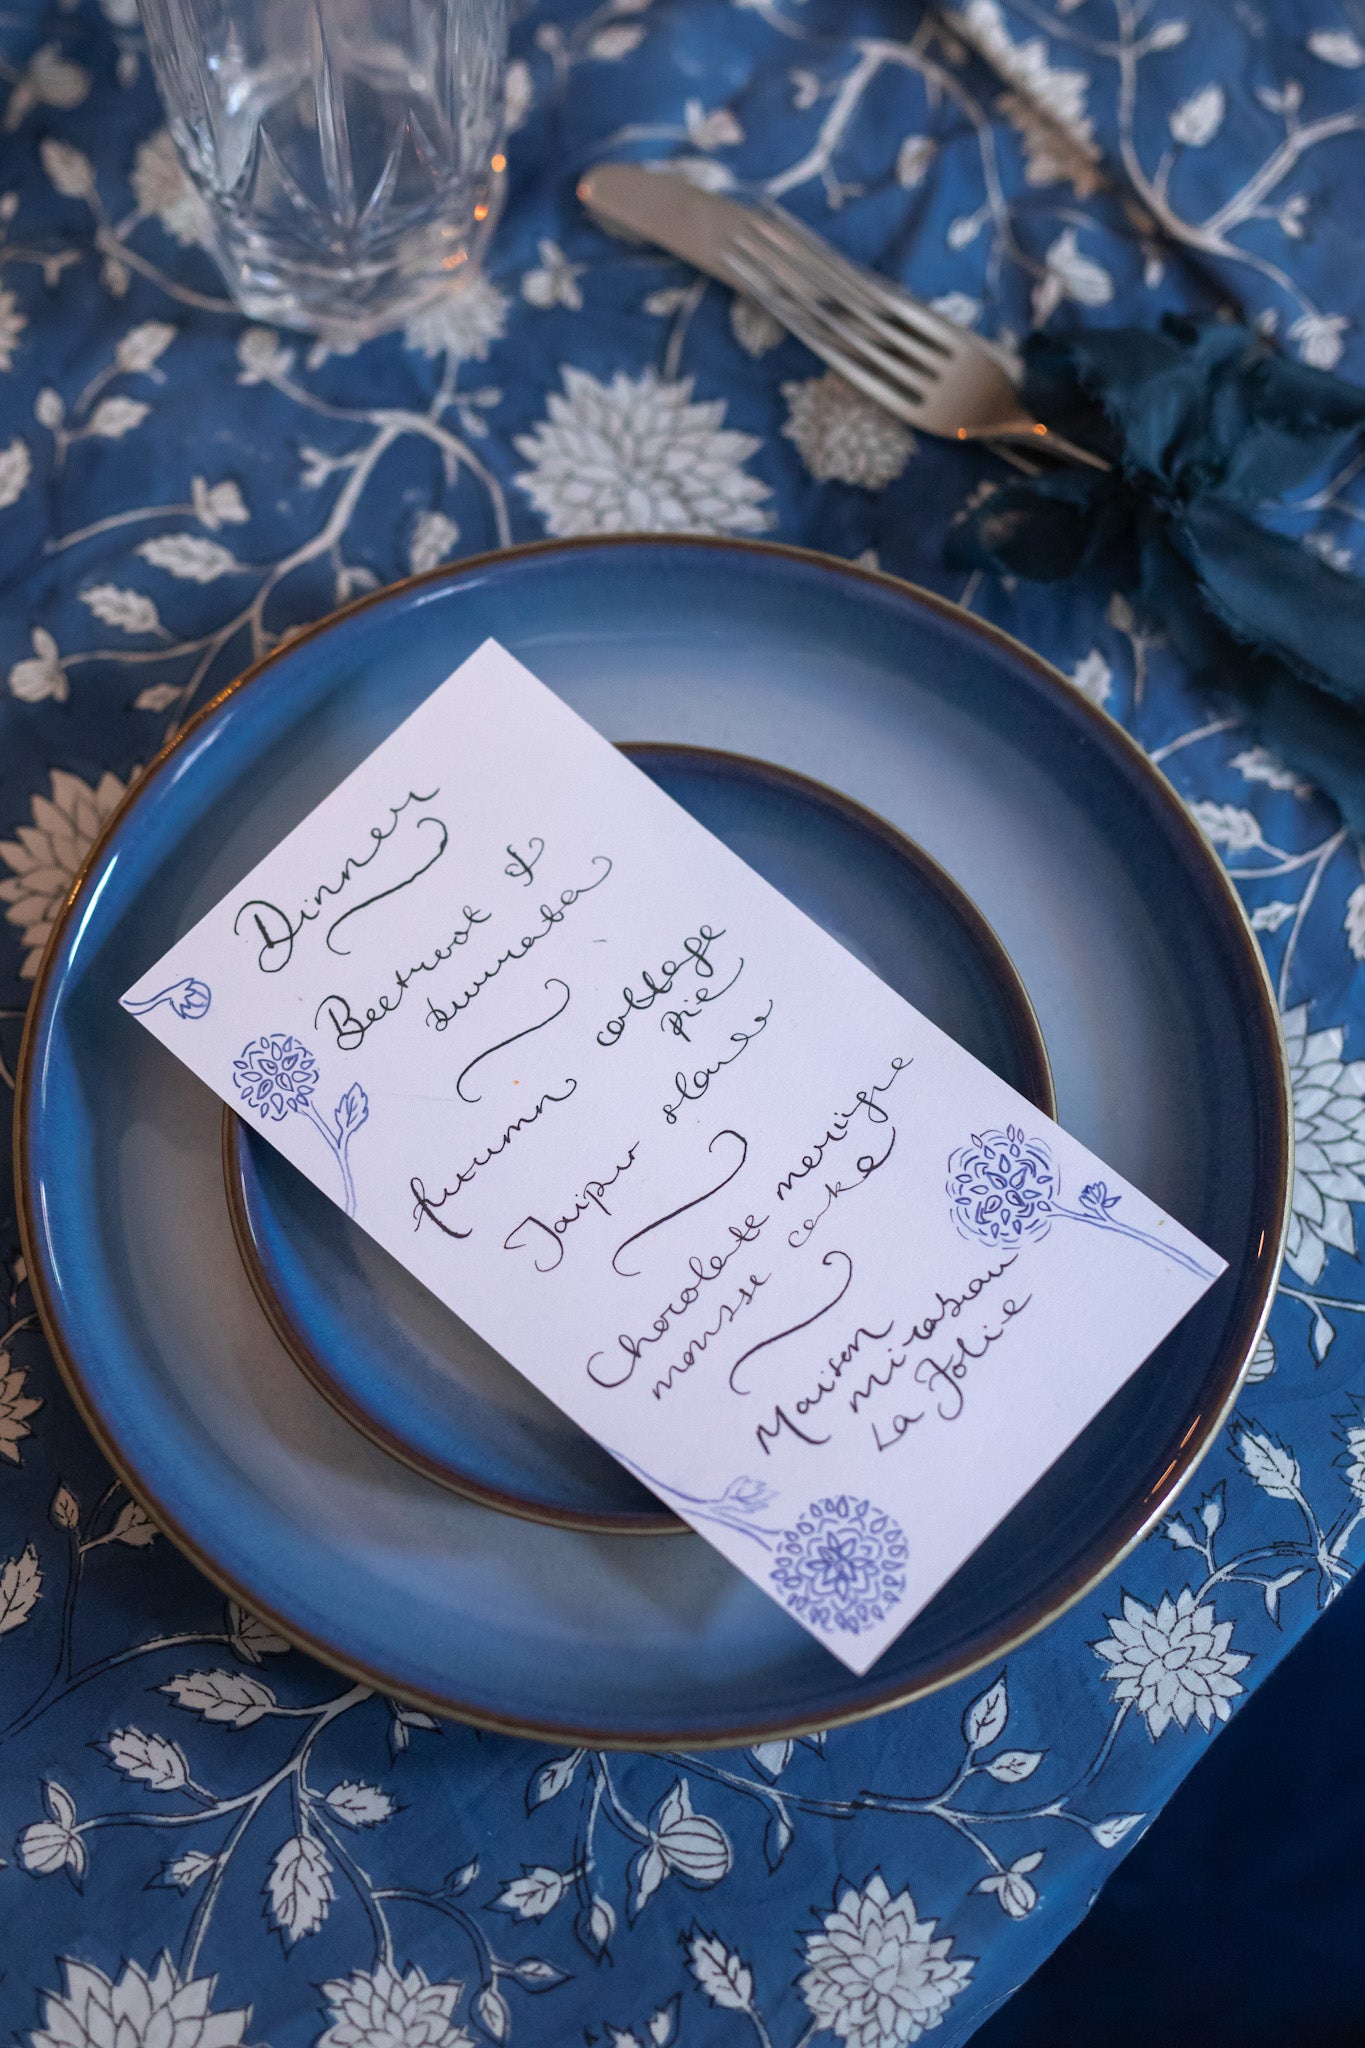 Dinner
Beetroot &
burrata
Autumn cottage
pie
Jaipur slaw
Chocolate meringue
mousse cake
Maison
Mirabeau
La Folie